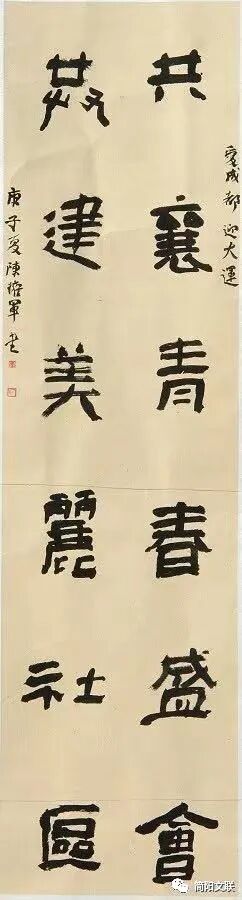 愛成都 迎大運
共襄青春盛會
建美麗社區
庚子夏陳軍書
简阳文联